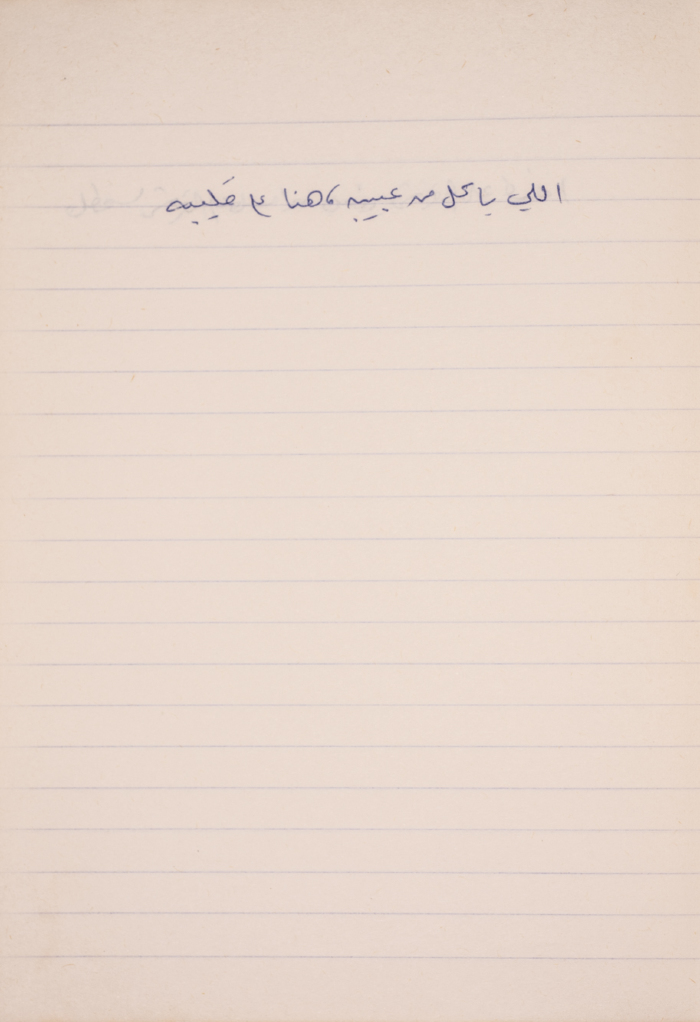 اللي ياكل من عبيبه ، هنا ع قليبه